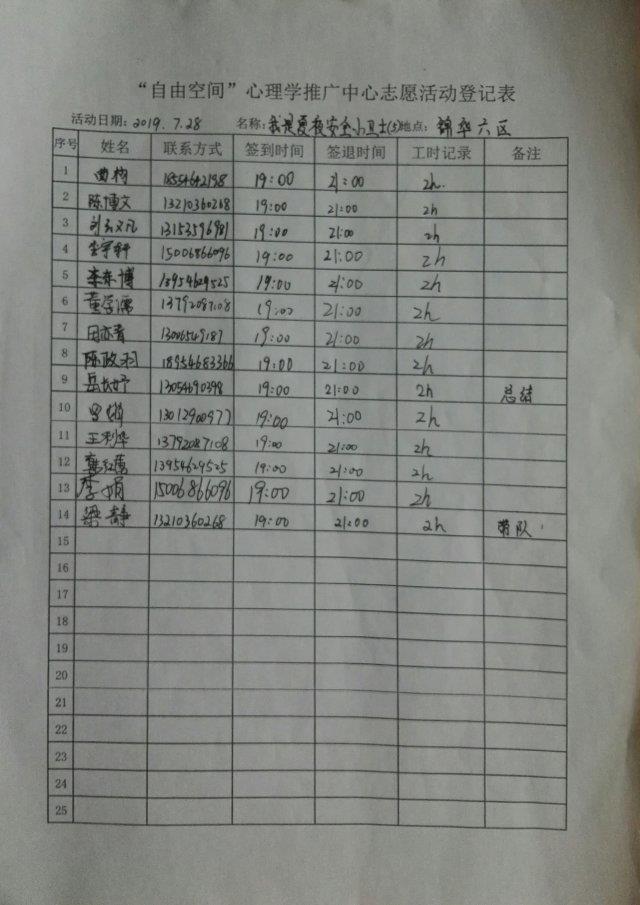 “自由空间”心理学推广中心志愿活动登记表
活动日期：2019.7.28 名称：我是夏夜安全小卫士(5) 地点：锦华六区
序号 姓名 联系方式 签到时间 签退时间 工时记录 备注
1 18554642198 19:00 21:00 2h.
2 陈博文 13210360268 19:00 21:00 2h
3 13153596981 19:00 21:00 2h
4 李宇轩 15006866096 19:00 21:00 2h
5 李东博 13954629525 19:00 21:00 2h
6 董学儒 13792087108 19:00 21:00 2h
7 田亦青 13006549187 19:00 21:00 2h
8 陈政羽 18954683366 19:00 21:00 2h
9 岳妤 13054690398 19:00 21:00 2h 总结
10 13012900977 19:00 21:00 2h
11 王利华 13792087108 19:00 21:00 2h
12 13954629525 19:00 21:00 2h
13 李娟 15006866096 19:00 21:00 2h
14 梁静 13210360268 19:00 21:00 2h 带队
15
16
17
18
19
20
21
22
23
24
25